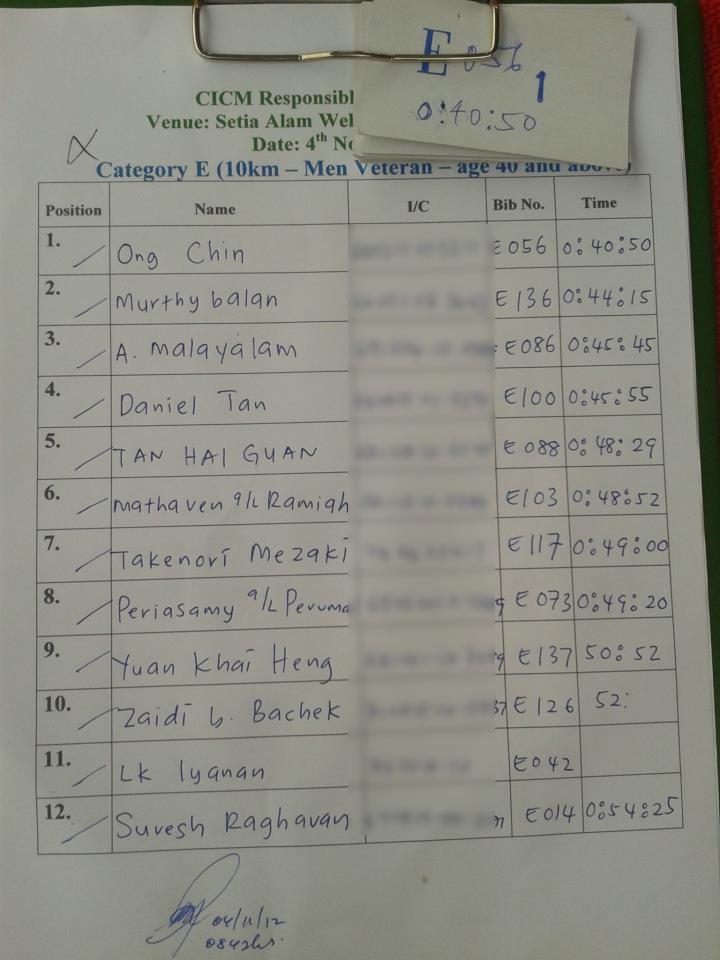 E 056
1
0:40:50
CICM Responsibl
Venue: Setia Alam Wel
Date: 4th No
Category E (10km – Men Veteran – age 40 and above)
Position Name I/C Bib No. Time
1. Ong Chin E 056 0:40:50
2. Murthy balan E 136 0:44:15
3. A. malayalam E 086 0:45:45
4. Daniel Tan E 100 0:45:55
5. TAN HAI GUAN E 088 0:48:29
6. mathaven a/L Ramiah E 103 0:48:52
7. Takenori Mezaki E 117 0:49:00
8. Periasamy a/L Peruma E 073 0:49:20
9. Yuan Khai Heng E 137 50:52
10. Zaidi b. Bachek E 126 52:
11. Lk Iyanan E042
12. Suresh Raghavan E 014 0:54:25
04/11/12
0842hrs.